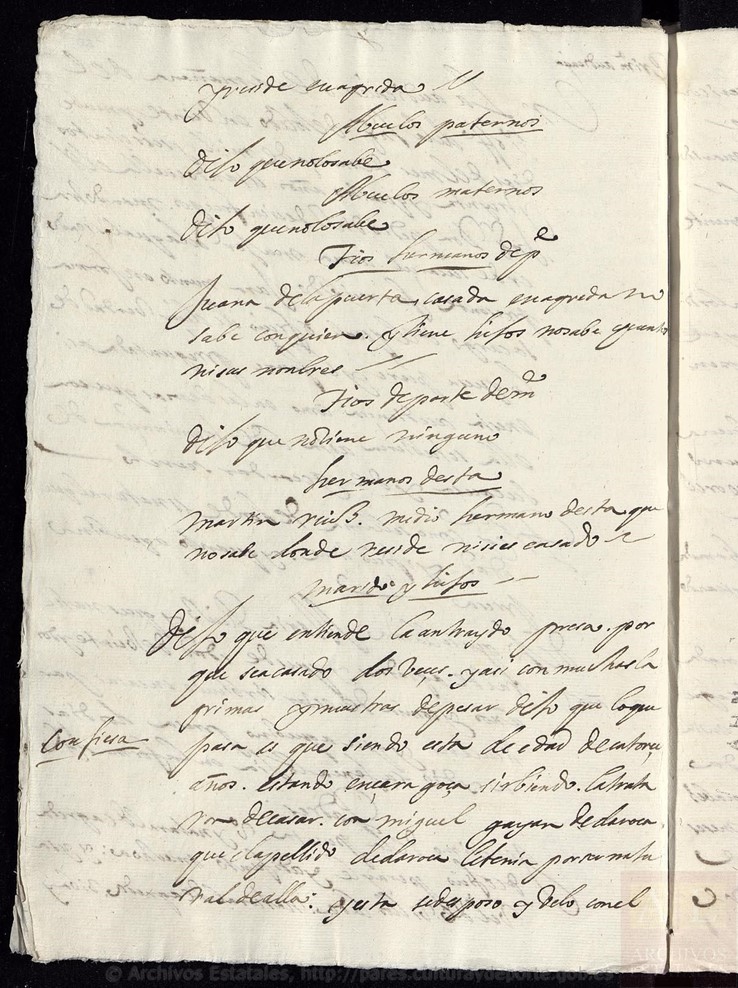 y reside en agreda //
Abuelos paternos
dixo que no lo sabe
Abuelos maternos
dixo que no lo sabe
Tios hermanos de pe
Juana de la puerta casada en agreda no
sabe con quien. y tiene hijos no sabe quantos
ni sus nonbres //
Tios de parte de me
dixo que no tiene ninguno
hermanos desta
martin ruiz. medio hermano desta que
no sabe donde reside ni si es casado
marido y hijos
dixo que entiende la an traydo presa. por
que se a casado dos veçes. y asi con muchas la
grimas y muestras de pesar dixo que lo que
Confiesa
pasa es que siendo esta de edad de catorçe
años. estando en çaragoça sirbiendo. la trata
ron de casar. con miguel gayan de daroca
que el apellido de daroca le tenia por ser natu
ral de alla: y esta se desposo y velo con el
© Archivos Estatales, http://pares.culturaydeporte.gob.es
ARCHIVOS